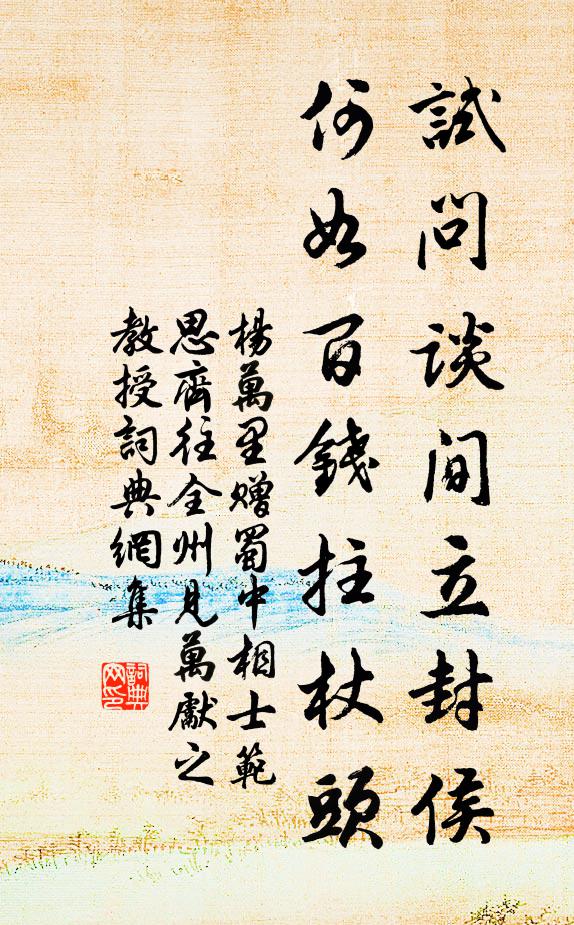 試問談間立封侯
何如百錢拄杖頭
楊萬里贈蜀中相士範
思齊往全州見萬獻之
教授詞典網集
詞典
网印